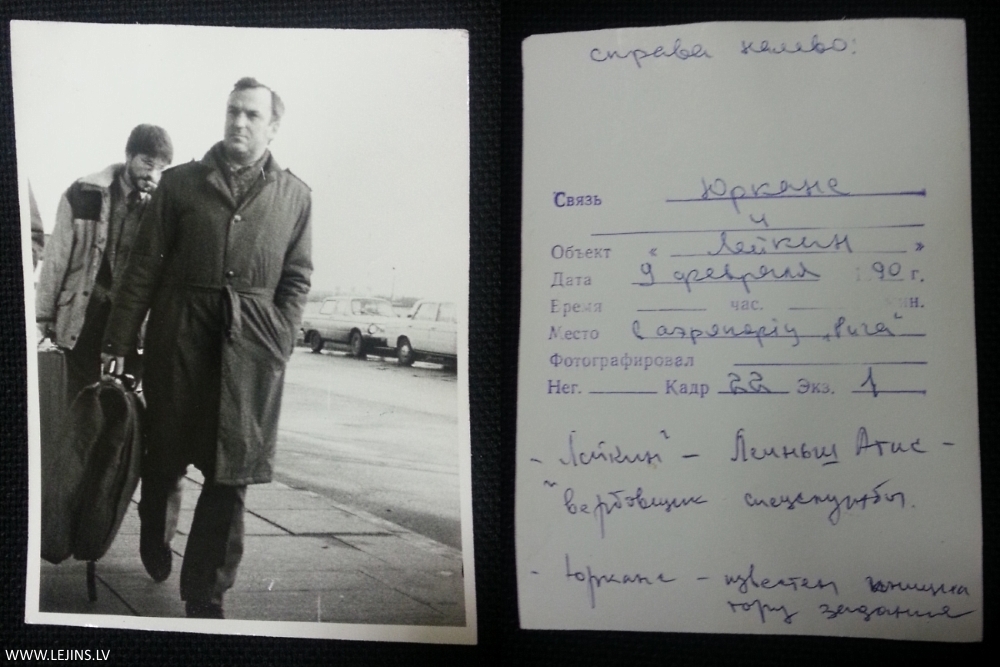 справа налево:
Связь Юрканс
и
Объект « Лейкин »
Дата 9 февраля 1990 г.
Время час. мин.
Место аэропорту „Рига"
Фотографировал
Нег. Кадр 22 Экз. 1
- „Лейкин" - Лейньш Атис -
вербовщик спецслужбы.
- Юрканс - известен
задания
WWW.LEJINS.LV